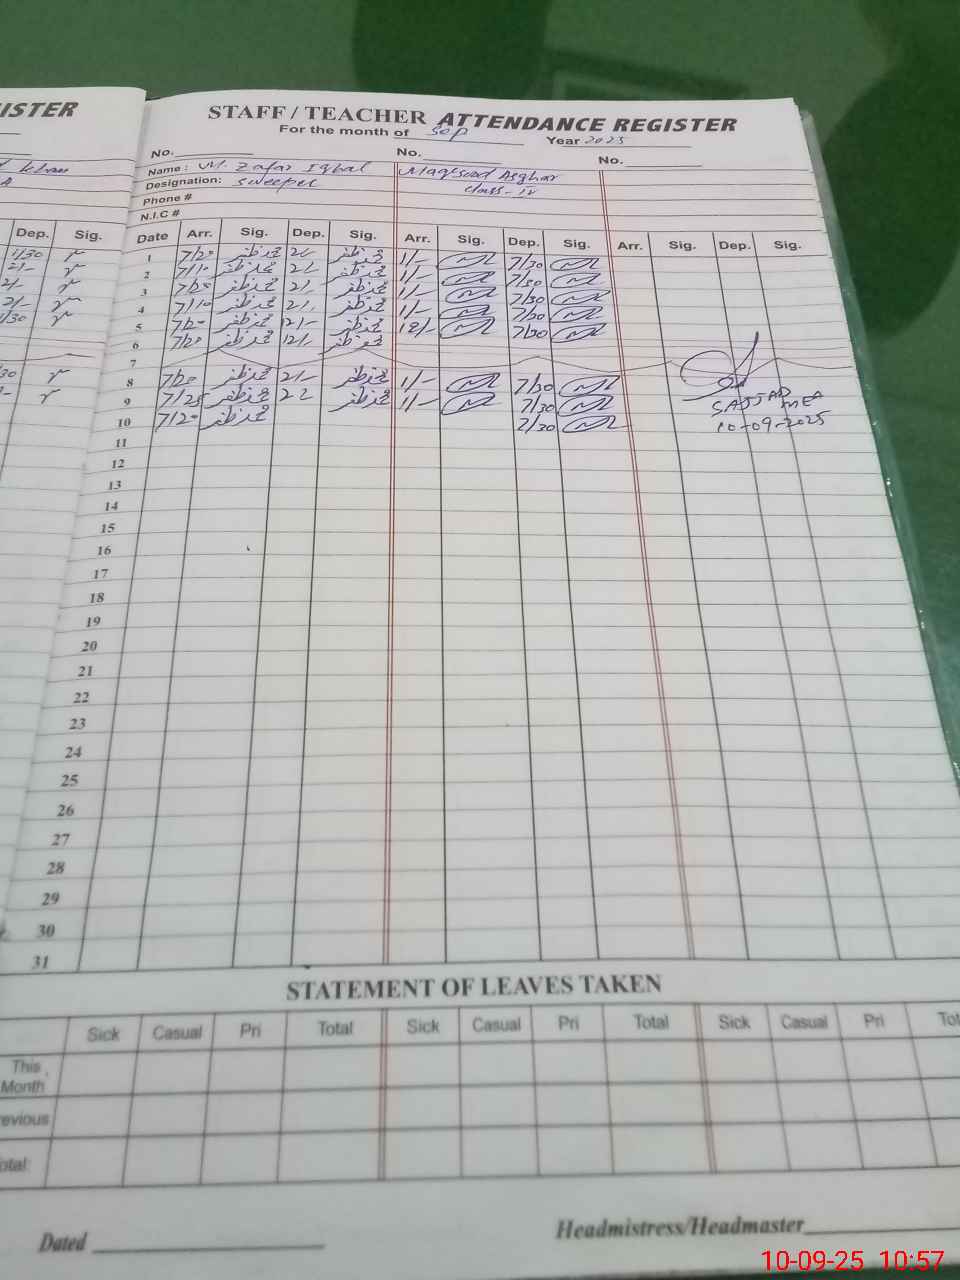 ISTER
STAFF / TEACHER ATTENDANCE REGISTER
For the month of Sep Year 2025
No. No. No.
Khan Name: M. Zafar Iqbal Maqsood Asghar
Designation: Sweeper Class-IV
Phone #
N.I.C #
Dep. Sig. Date Arr. Sig. Dep. Sig. Arr. Sig. Dep. Sig. Arr. Sig. Dep. Sig.
1/30 1 7/20 محمد ظفر 2/- محمد ظفر 1/- 7/30
2/- 2 7/10 محمد ظفر 2/- محمد ظفر 1/- 7/30
2/- 3 7/20 محمد ظفر 2/- محمد ظفر 1/- 7/30
2/- 4 7/10 محمد ظفر 2/- محمد ظفر 1/- 7/30
1/30 5 7/20 محمد ظفر 12/- محمد ظفر 12/- 7/30
6 7/20 محمد ظفر 12/- محمد ظفر
7
8 7/20 محمد ظفر 2/- محمد ظفر 1/- 7/30
9 7/25 محمد ظفر 2/- محمد ظفر 1/- 7/30 SAJJAD MEA
10 7/20 محمد ظفر 7/30 10-09-2025
11
12
13
14
15
16
17
18
19
20
21
22
23
24
25
26
27
28
29
30
31
STATEMENT OF LEAVES TAKEN
Sick Casual Pri Total Sick Casual Pri Total Sick Casual Pri Tot
This Month
evious
otal:
Dated Headmistress/Headmaster
10-09-25 10:57